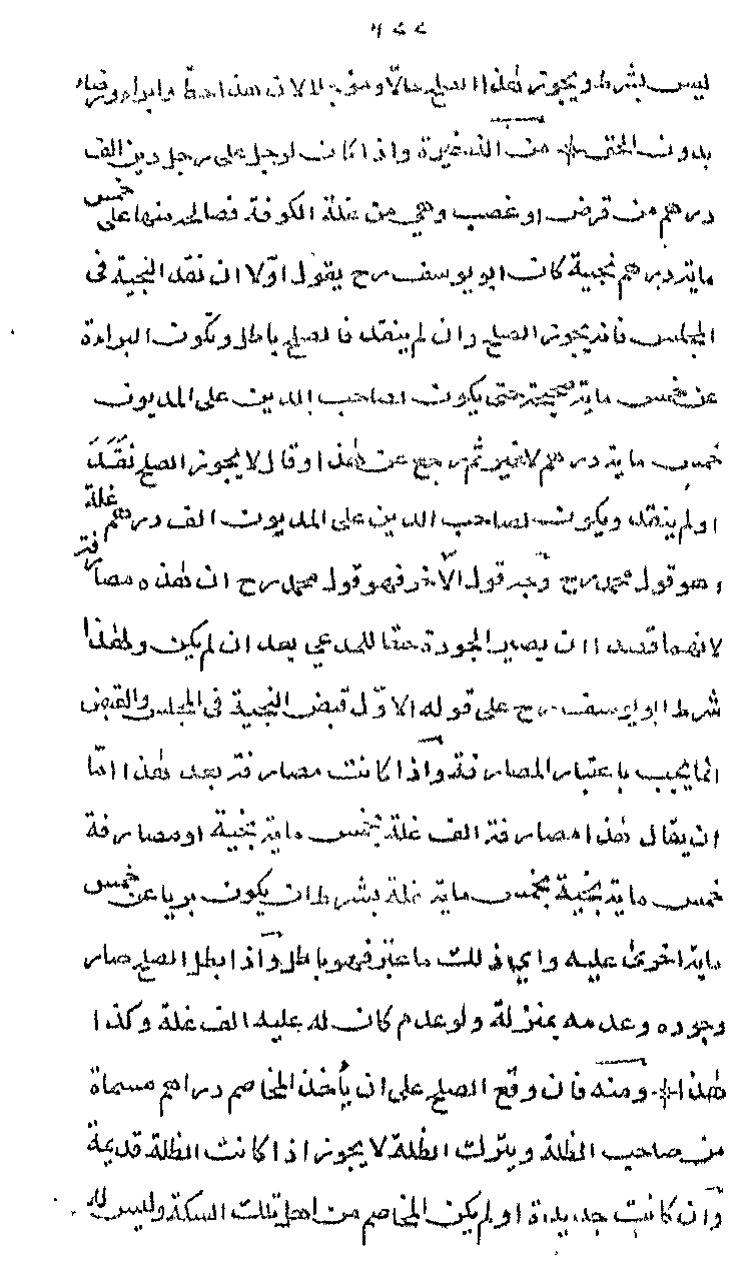 ليس بشرط ويجوز هذا الصلح حالا ومؤجلا لان هذا حط وابراء وترضاء
بدون الحق من الذخيرة واذا كان لرجل على رجل دين الف
درهم من قرض او غصب وهي من غلة الكوفة فصالحه منها على خمس
ماية درهم نجية كان ابو يوسف رح يقول اولا ان نقد النجية فى
المجلس فانه يجوز الصلح وان لم ينقد فالصلح باطل وتكون البراءة
عن خمس ماية صحيحة حتى يكون لصاحب الدين على المديون
خمس ماية درهم لا غير ثم رجع عن هذا وقال لا يجوز الصلح نَقَدَ
او لم ينقد ويكون لصاحب الدين على المديون الف درهم غلة
وهو قول محمد رح وجه قول الآخر فهو قول محمد رح ان هذه مصارفة
لانهما قصدا ان يصير الجودة حقا للمدعي بعد ان لم يكن ولهذا
شرط ابو يوسف رح على قوله الاوّل قبض النجية فى المجلس والقبض
انما يجب باعتبار المصارفة واذا كانت مصارفة بعد هذا اما
ان يقال هذا مصارفة الف غلة بخمس ماية نجية او مصارفة
خمس ماية نجية بخمس ماية غلة بشرط ان يكون بريا عن خمس
ماية اخرى عليه واي ذلك ما عتبر فهو باطل واذا بطل الصلح صار
وجوده وعدمه بمنزلة ولو عدم كان له عليه الف غلة وكذا
هذا ومنه فان وقع الصلح على ان يأخذ المخاصم دراهم مسماة
من صاحب الظلة ويترك الظلة لا يجوز اذا كانت الظلة قديمة
وان كانت جديدة او لم يكن المخاصم من اهل تلك السكة وليس له